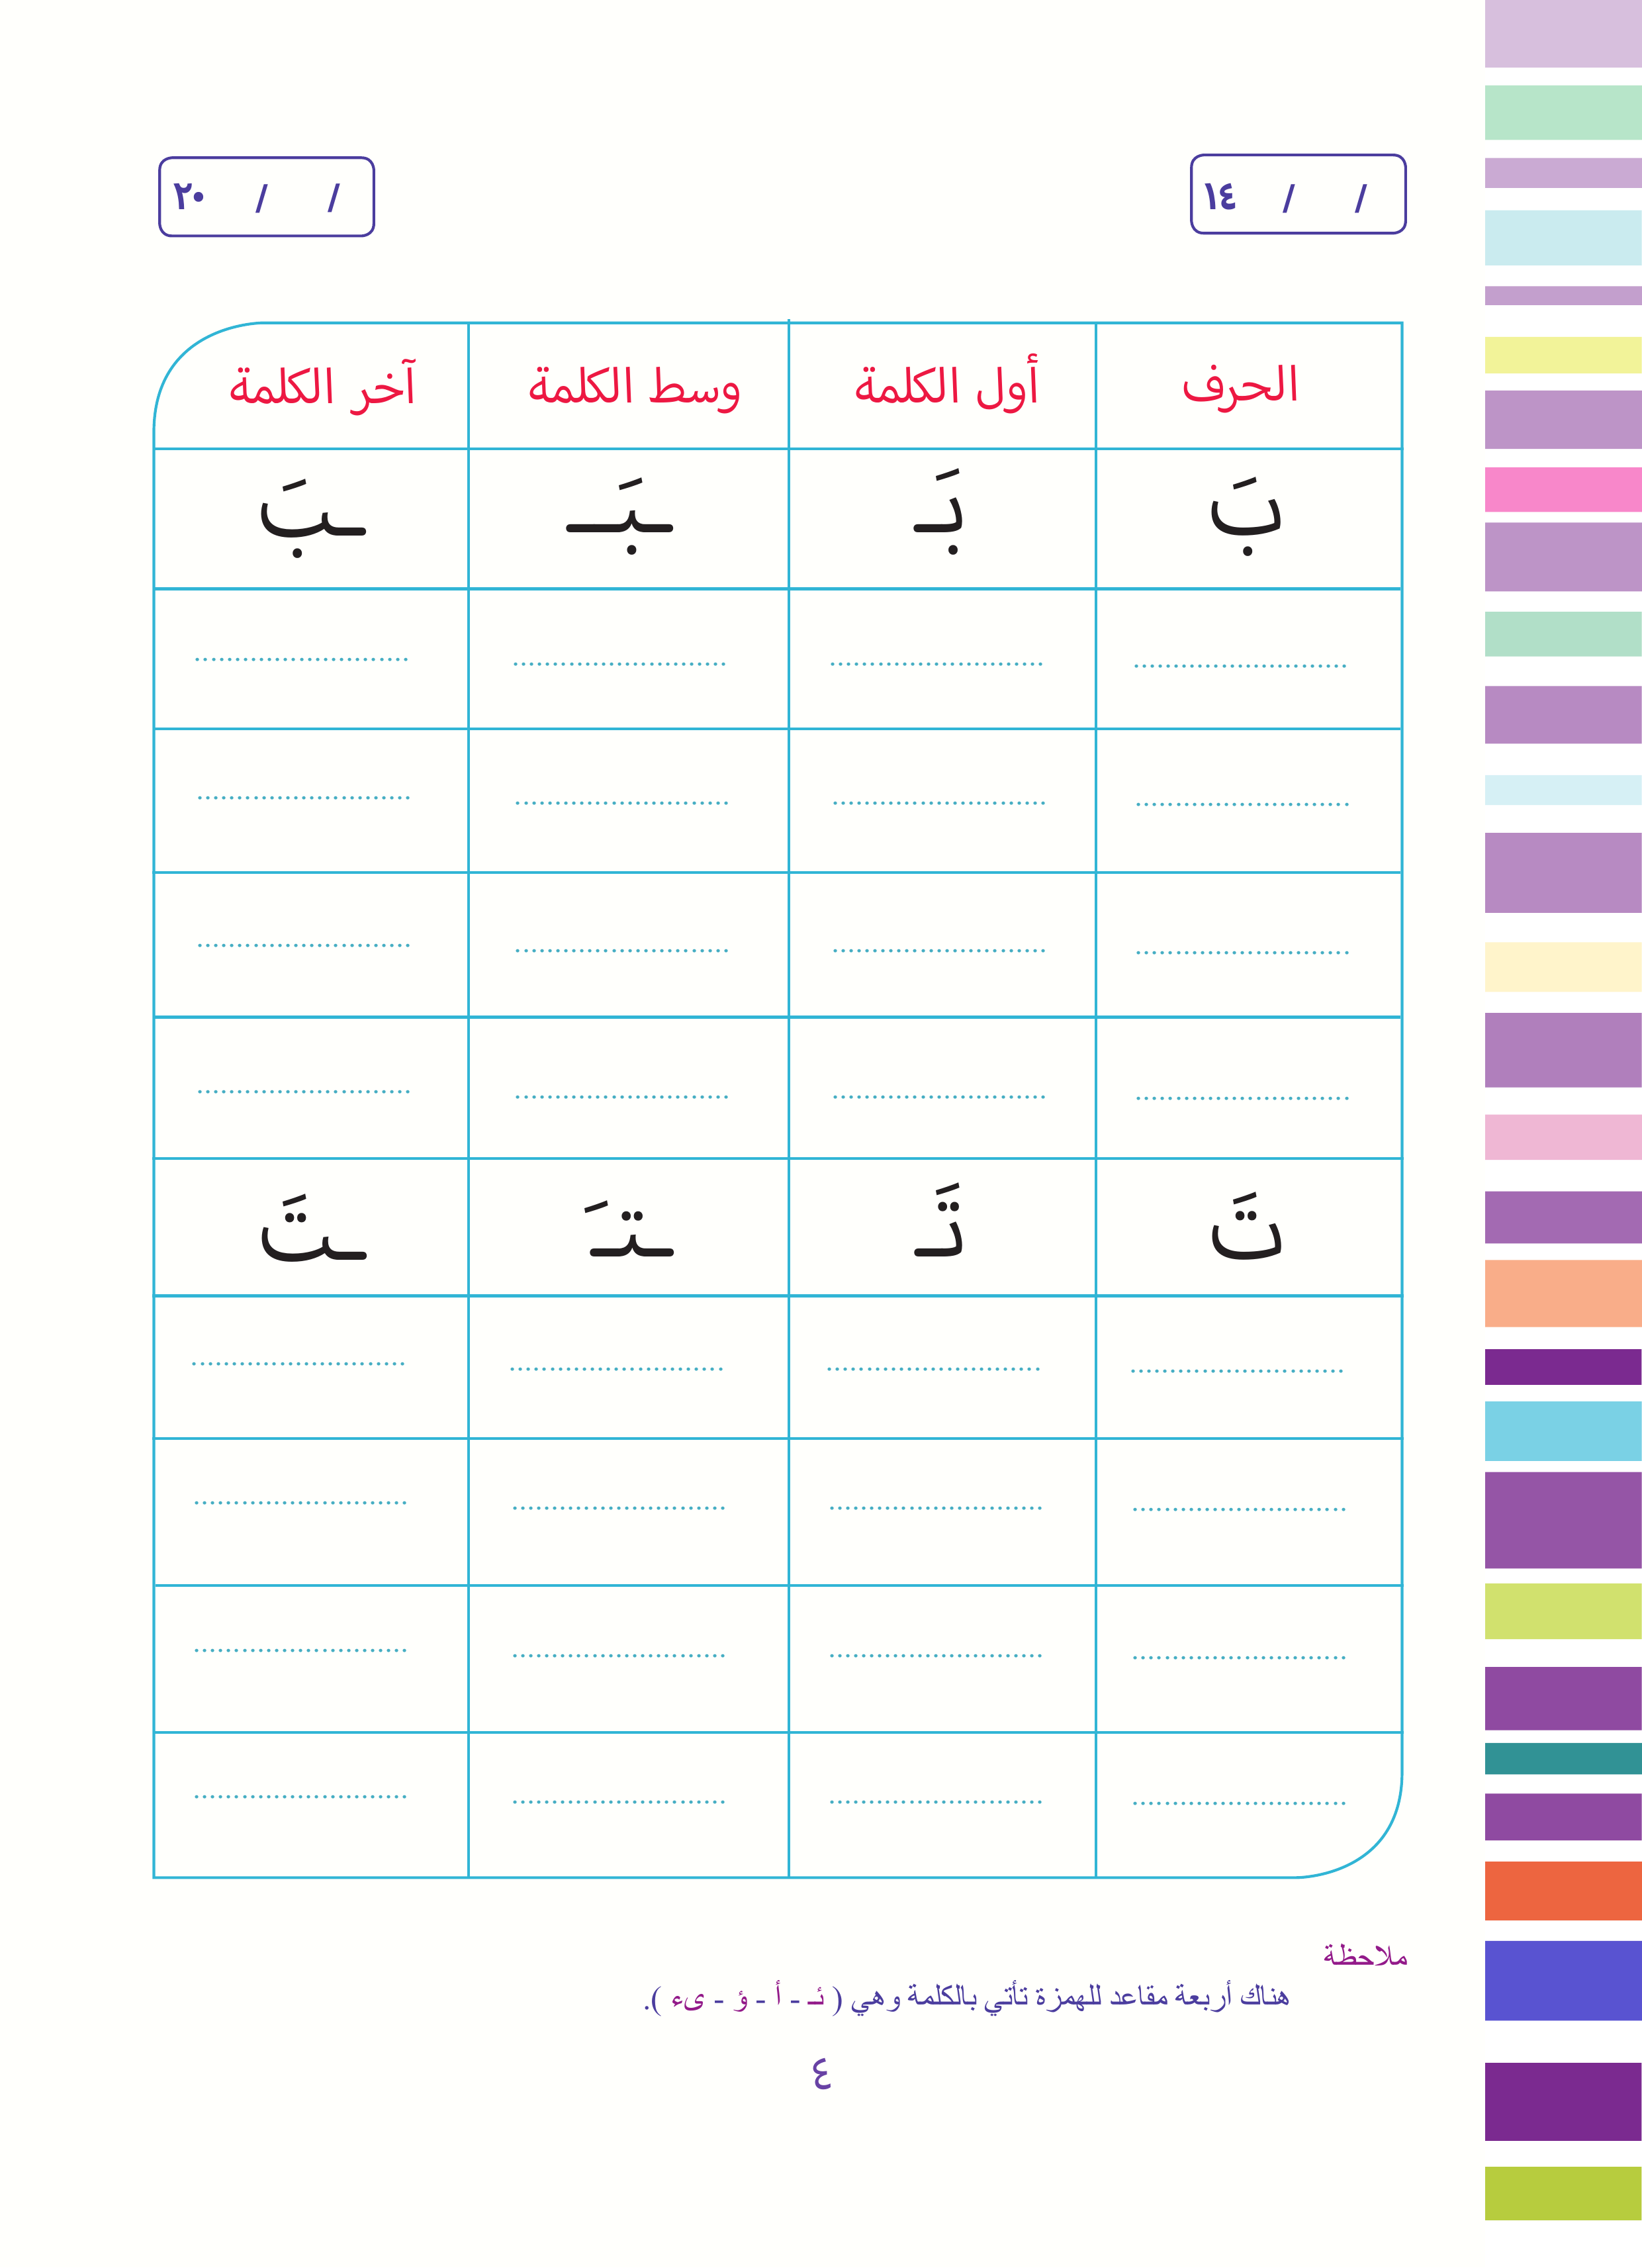 / / ١٤
/ / ٢٠
الحرف أول الكلمة وسط الكلمة آخر الكلمة
بَ بَـ ـبَــ ـبَ
........................... ........................... ........................... ...........................
........................... ........................... ........................... ...........................
........................... ........................... ........................... ...........................
........................... ........................... ........................... ...........................
تَ تَـ ـتـَ ـتَ
........................... ........................... ........................... ...........................
........................... ........................... ........................... ...........................
........................... ........................... ........................... ...........................
........................... ........................... ........................... ...........................
ملاحظة
هناك أربعة مقاعد للهمزة تأتي بالكلمة وهي ( ئـ - أ - ؤ - ىء ).
٤